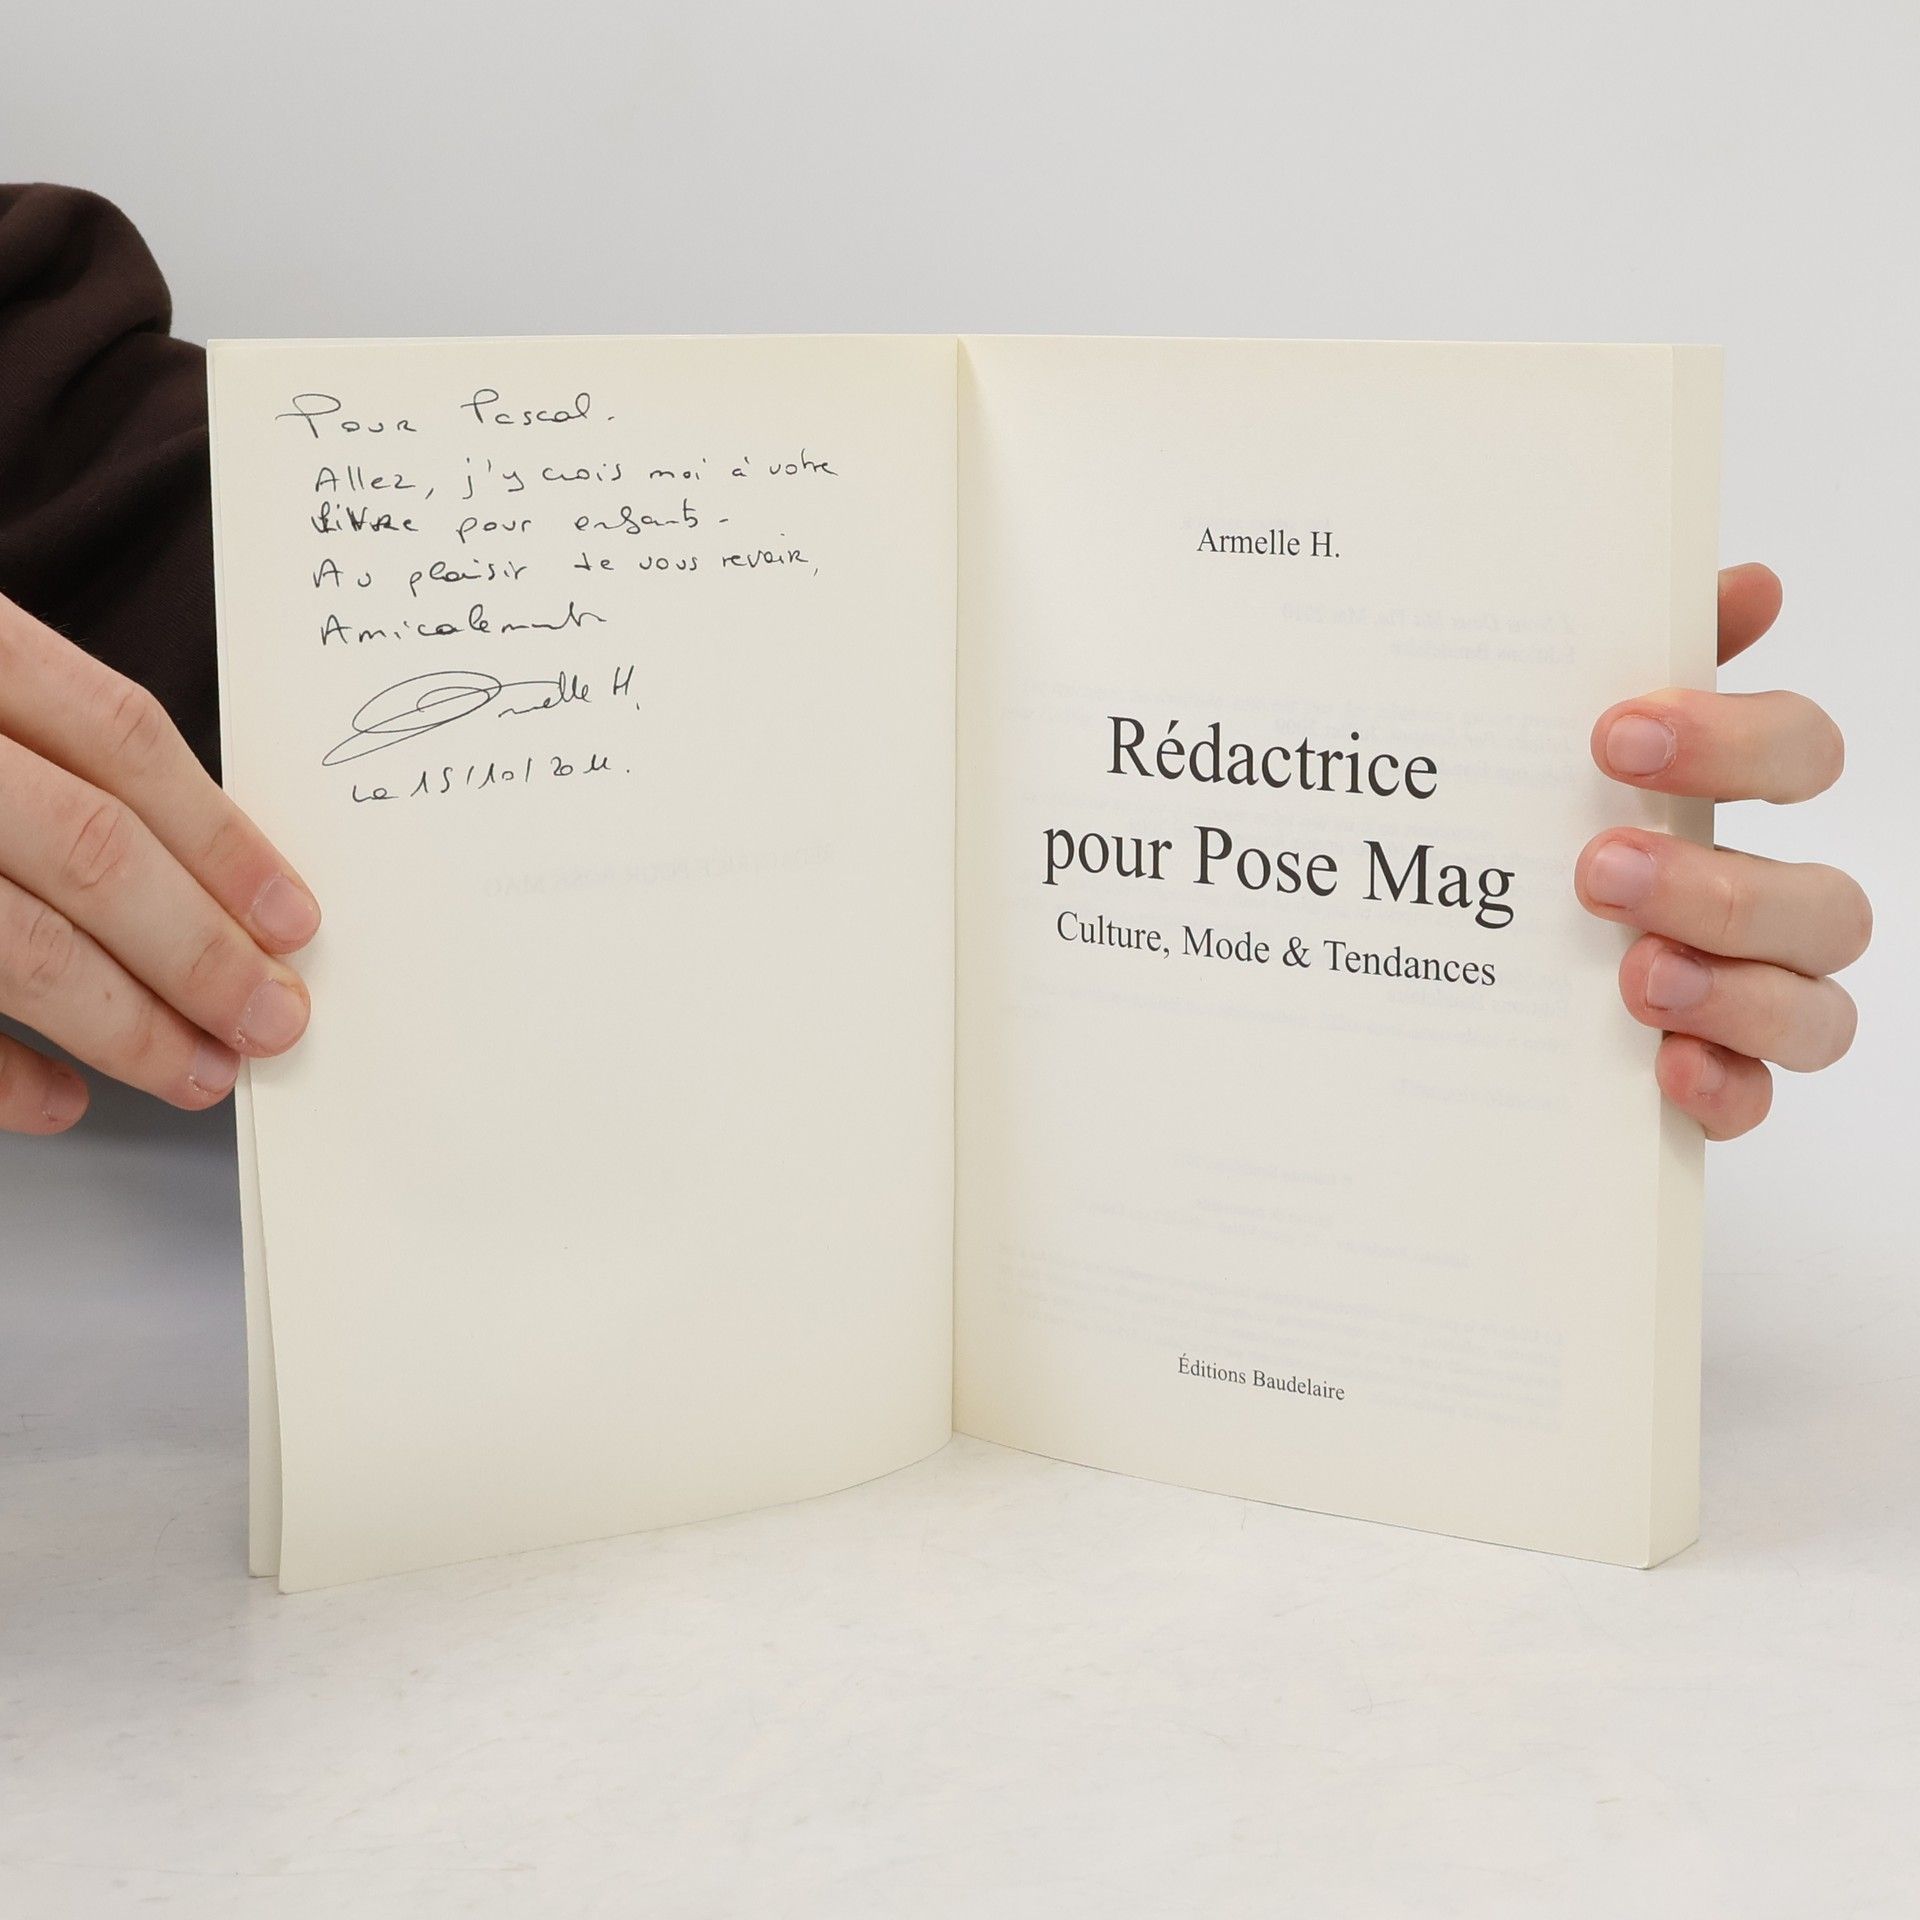 Pour Pascal.
Allez, j'y crois moi à votre
livre pour enfants.
Au plaisir de vous revoir,
Amicalement
Armelle H.
Le 15/10/2011.
Armelle H.
Rédactrice
pour Pose Mag
Culture, Mode & Tendances
Éditions Baudelaire